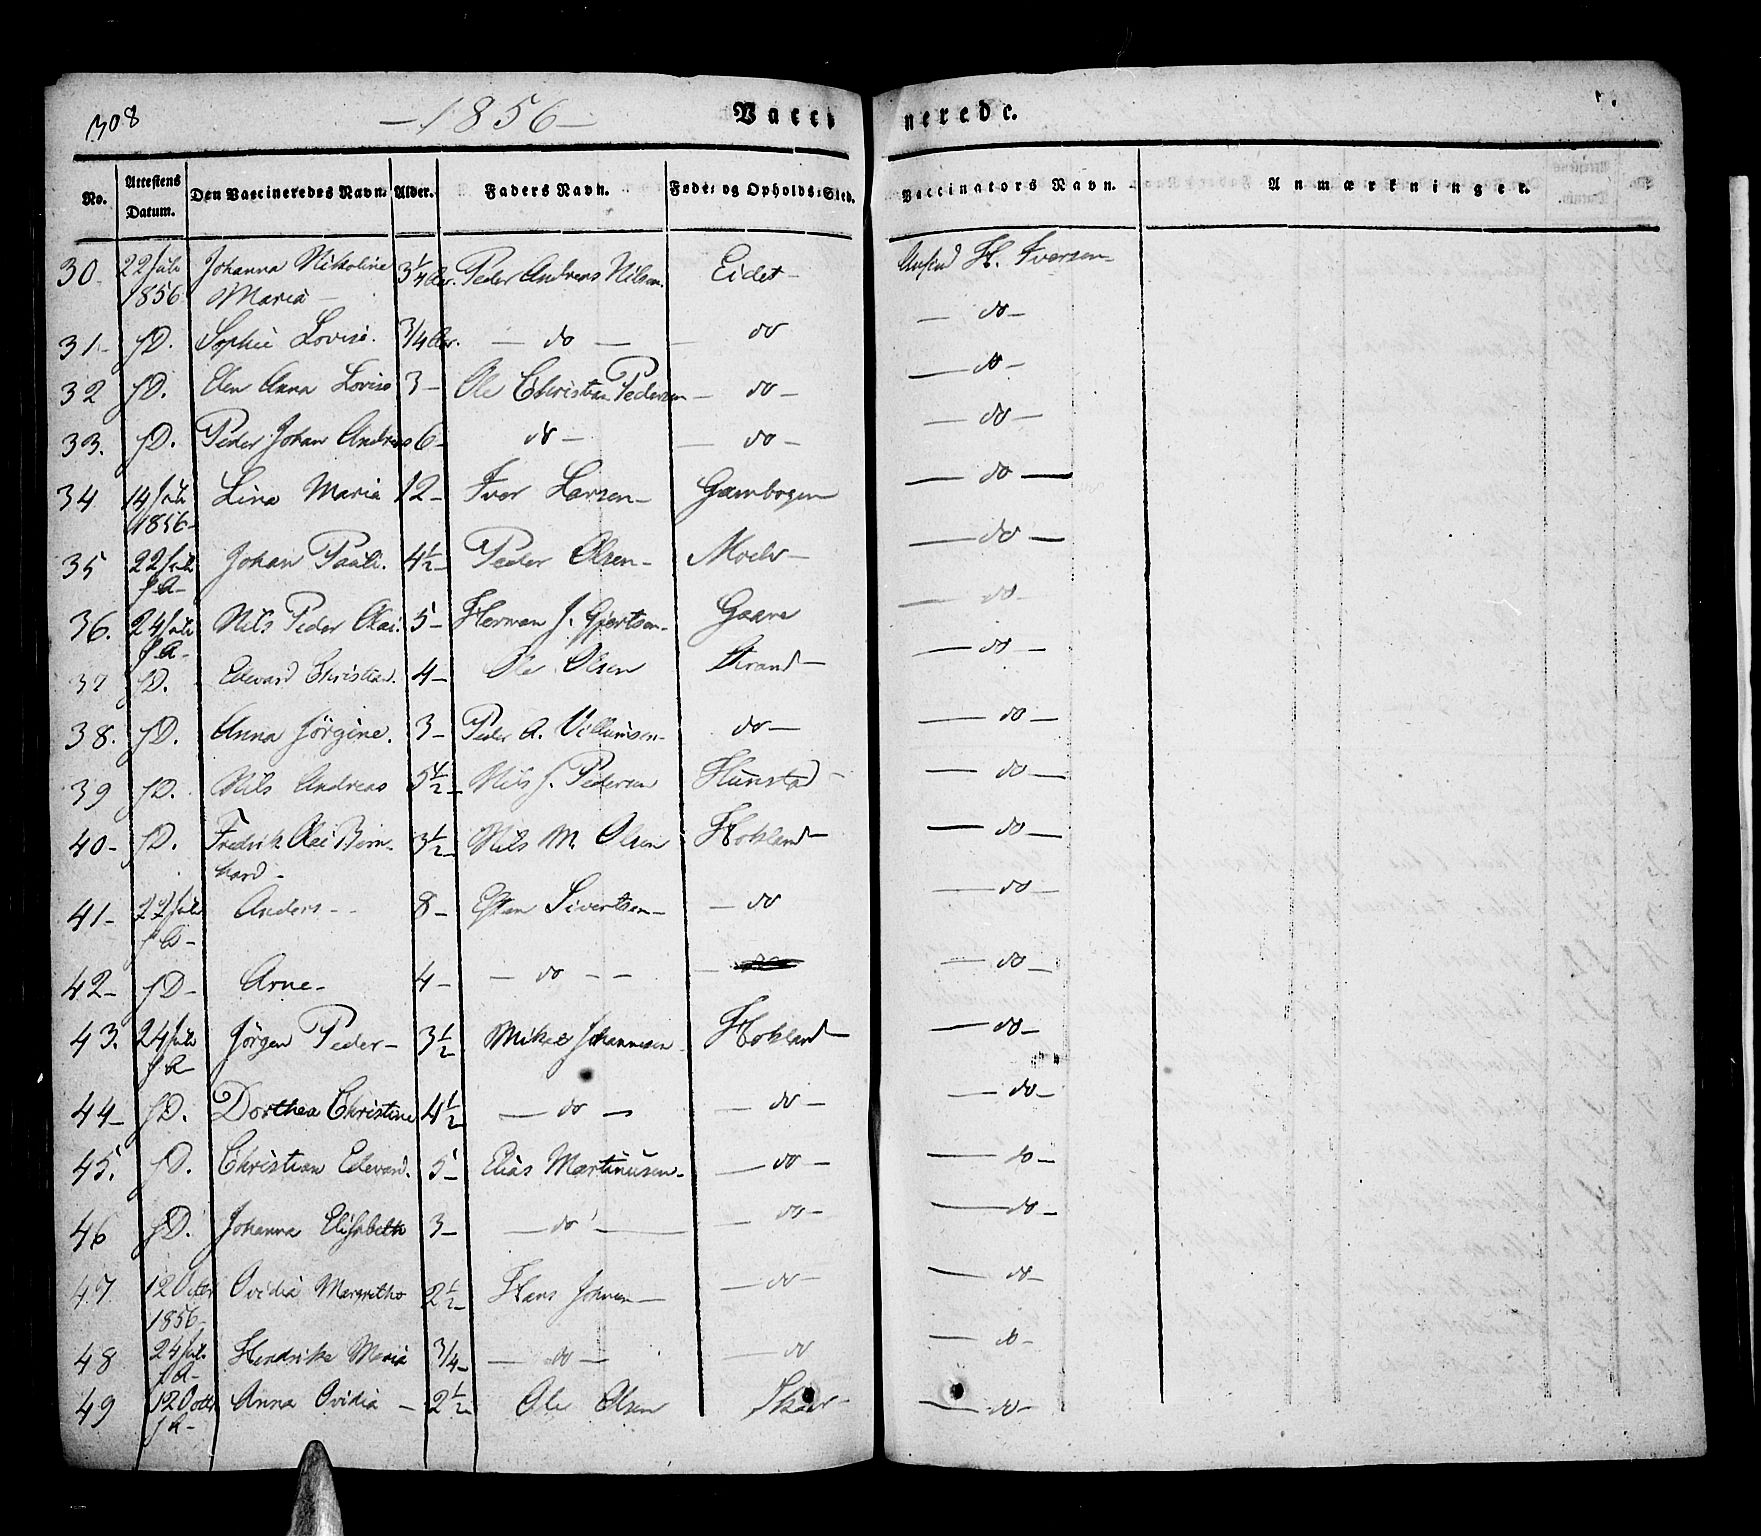 308 —1856— Vacci nerede.
No. Attestens Datum. Den Vaccineredes Navn. Alder. Faders Navn. Føde- og Opholds-Sted. Vaccinators Navn. Anmærkninger.
30. 22 Juli Johanna Nikoline 3¼ Aar. Peder Andreas Nilsen. Eidet — H. Iversen —
1856 Maria —
31 — s.D. Sophie Lovise. 3/4 Aar. — do — — do — do —
32 s.D. Elen Anna Lovise 3 — Ole Christian Pedersen — do — — do —
33. s.D. Peder Johan Andreas 6 — do — — do — — do —
34 14 Juli Lina Maria 12 — Iver Larsen — Gambogen — do —
1856 —
35 22 Juli Johan Pauli. 4½ Peder Olsen — — do —
s.A —
36. 24 Juli Nils Peder Olai. 5 — Herman J. Gjertsen — Gaare — do —
s.A —
37 s.D. Edevard Christian. 4 — Ole Olsen Strand — — do —
38. s.D. Anna Jörgine. 3 — Peder A. Villumsen — do — — do —
39 s.D. Nils Andreas 5½ — Nils J. Pedersen Hunstad — — do —
40 — s.D. Fredrik Olai Bern- 3½ — Nils M. Olsen Hokland — — do —
hard —
41 — 22 Juli Anders — 8 — Esten Sivertsen — — do — do —
s.A —
42 — s.D — Arne — 4 — — do — — — — do —
43. 24 Juli Jörgen Peder — 3½ Mikal Johannesen — Hokland — — do —
s.A —
44 — s.D. Dorthea Christine 4½ — do — — do — — do —
45. s.D. Christian Edevard. 5 — Elias Martinusen — — do — — do —
46 s.D. Johanna Elisabeth 3 — — do — — do — — do —
47 12 Octbr Ovidia Margrethe 2½ — Hans Johnsen — — do — — do —
1856 —
48 24 Juli Hendrikke Maria 3/4 — — do — — do — do —
s.A —
49 12 Octbr Anna Ovidia — 2½ — Ole Olsen — do —
s.A —